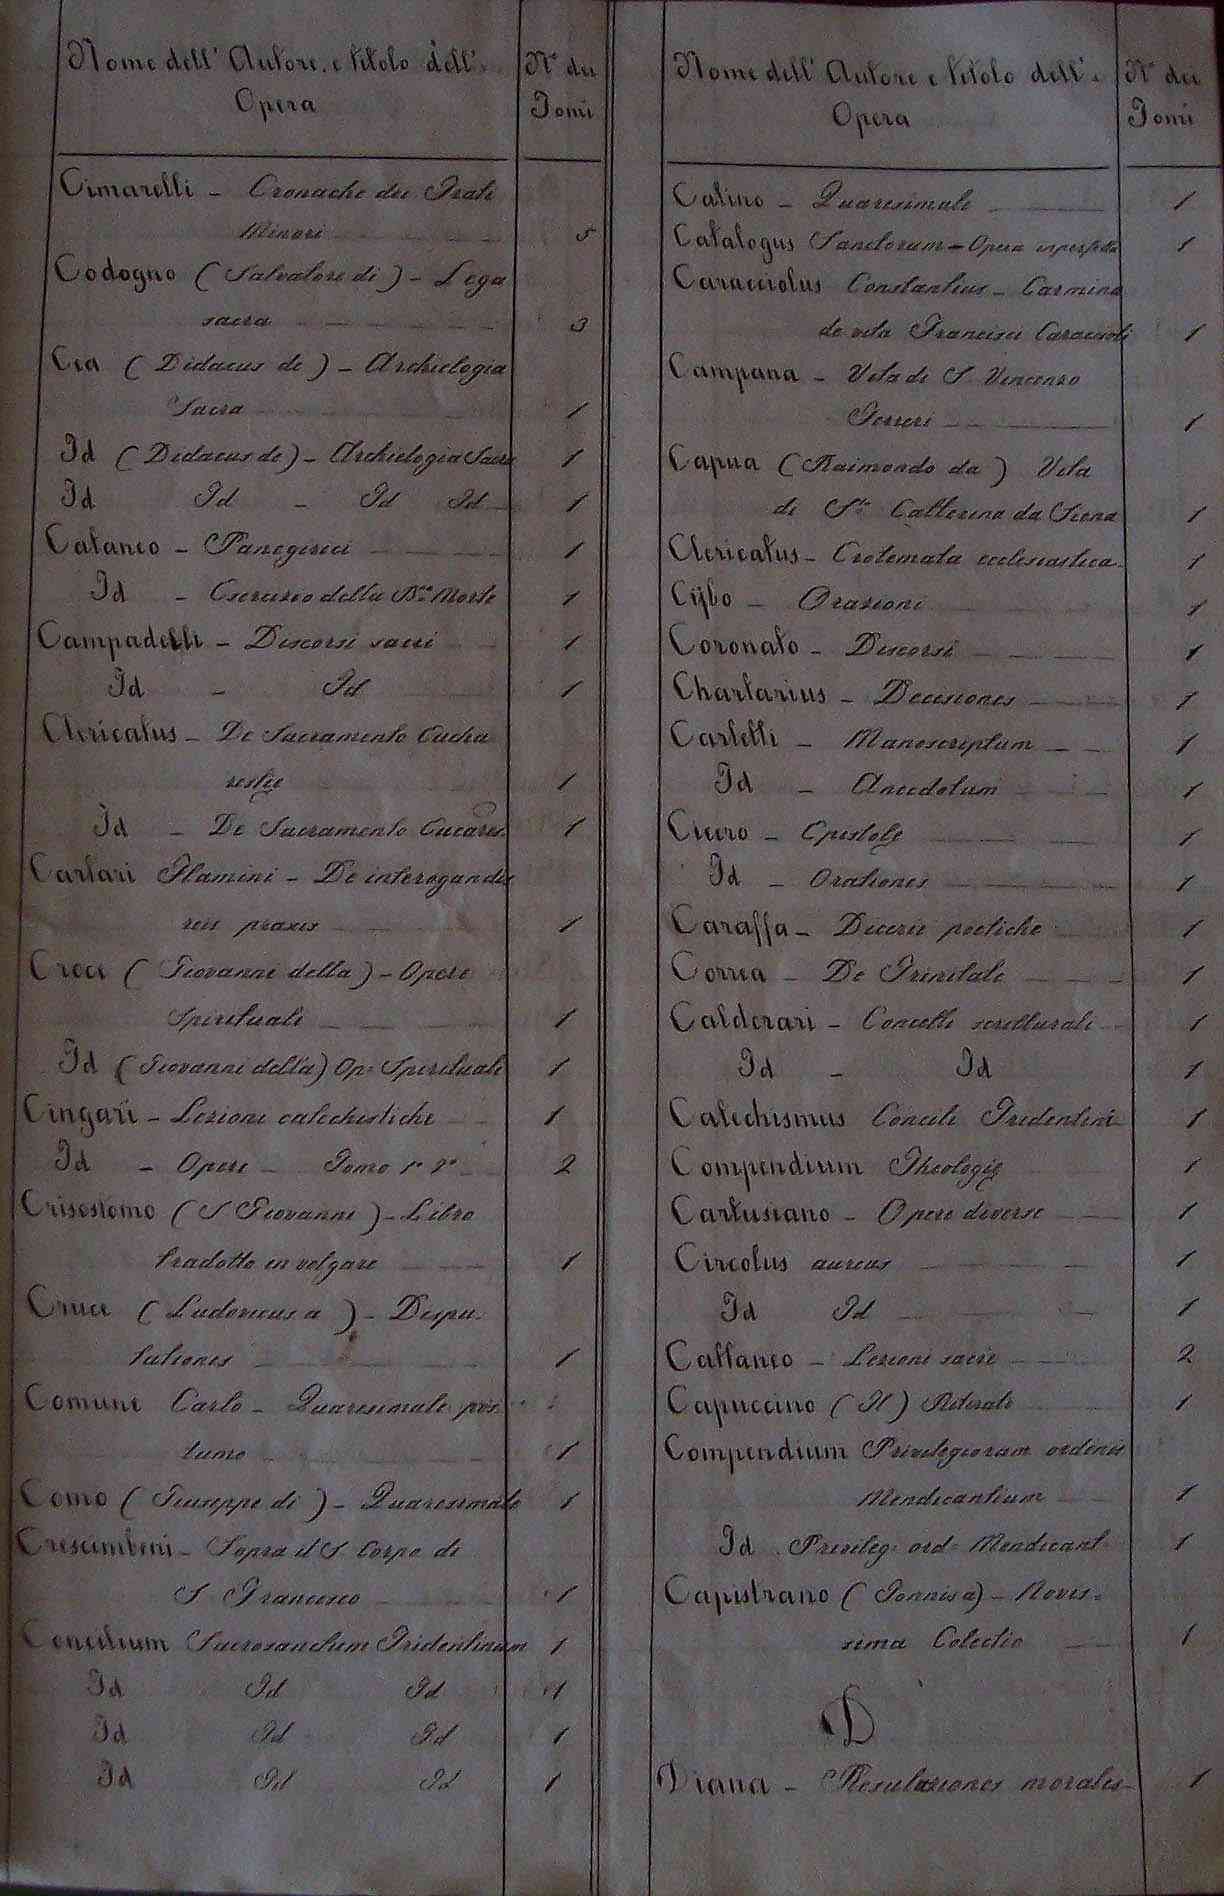 Nome dell' Autore e titolo dell'
Opera
N° dei
Tomi
Cimarelli - Cronache dei Frati
Minori 5
Codogno (Salvatore di) - Lega
sacra 3
Cea (Didacus de) - Archielogia
Sacra 1
Id (Didacus de) - Archielogia Sacra 1
Id Id - Id Id 1
Cataneo - Panegirici 1
Id - Esercizio della B.na Morte 1
Campadelli - Discorsi sacri 1
Id - Id 1
Clericatus - De Sacramento Eucha
restie 1
Id - De Sacramento Eucares. 1
Cartari Flamini - De interogandis
reis praxis 1
Croce (Giovanni della) - Opere
Spirituali 1
Id (Giovanni della) Op= Spirituali 1
Cingari - Lezioni catechistiche 1
Id - Opere - Tomo 1° 2° 2
Crisostomo (S Giovanni) - Libro
tradotto in volgare 1
Cruce (Ludovicus a) - Dispu-
tationes 1
Comune Carlo - Quaresimale pos
tumo 1
Como (Giuseppe di) - Quaresimale 1
Crescimbeni - Sopra il S. Corpo di
S Francesco 1
Concilium Sacrosanctum Tridentinum 1
Id Id Id 1
Id Id Id 1
Id Id Id 1
Nome dell' Autore e titolo dell'
Opera
N° dei
Tomi
Catino - Quaresimale 1
Catalogus Sanctorum - Opera imperfetta 1
Caracciolus Constantius - Carmina
de vita Francisci Caraccioli 1
Campana - Vita di S. Vincenzo
Ferreri 1
Capua (Raimondo da) Vita
di S.ta Catterina da Siena 1
Clericatus - Erotemata ecclesiastica 1
Cijbo - Orazioni 1
Coronato - Discorsi 1
Chartarius - Decisiones 1
Carletti - Manoscriptum 1
Id - Anecdotum 1
Cicero - Epistole 1
Id - Orationes 1
Caraffa - Dicerie poetiche 1
Correa - De Trinitate 1
Calderari - Concetti scritturali 1
Id - Id 1
Catechismus Concili Tridentini 1
Compendium Theologie 1
Cartusiano - Opere diverse 1
Circolus aureus 1
Id Id 1
Cattaneo - Lezioni sacre 2
Capuccino (Il) Ritirato 1
Compendium Privilegiorum ordinis
Mendicantium 1
Id . Privileg= ord= Mendicant= 1
Capistrano (Joannis a) - Novis=
sima Colectio 1
D
Diana - Resolutiones morales 1